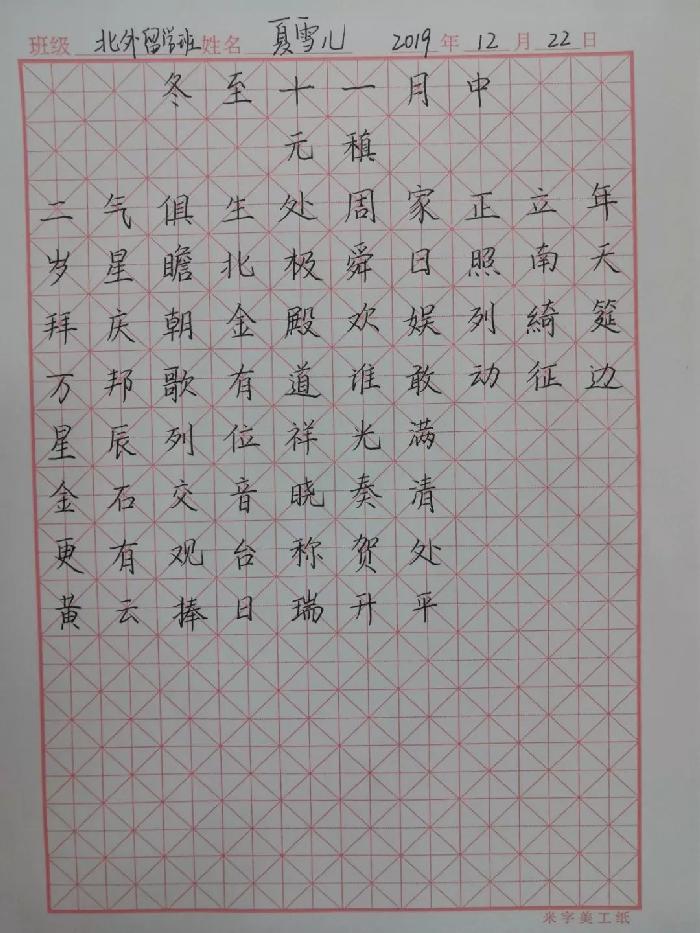 班级 北外留学班 姓名 夏雪儿 2019 年 12 月 22 日
冬至十一月中
元稹
二气俱生处周家正立年
岁星瞻北极舜日照南天
拜庆朝金殿欢娱列绮筵
万邦歌有道谁敢动征边
星辰列位祥光满
金石交音晓奏清
更有观台称贺处
黄云捧日瑞升平
米字美工纸